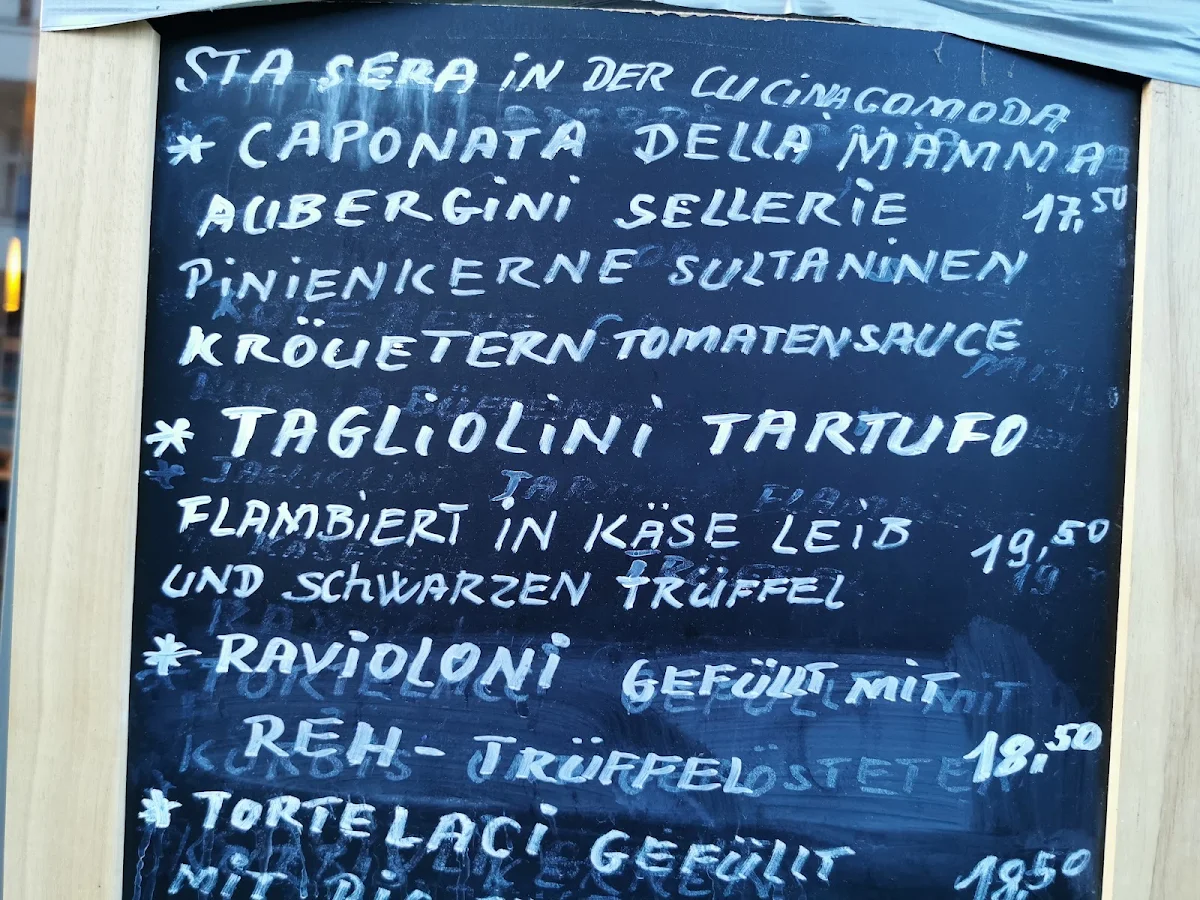 STA SERA iN DER CUCiNA COMODA
* CAPONATA DELLA MAMMA
AUBERGiNi SELLERiE 17,50
PiNiENKERNE SULTANiNEN
KRÖUETERN TOMATENSAUCE
* TAGLiOLiNi TARTUFO
FLAMBiERT iN KÄSE LEiB 19,50
UND SCHWARZEN TRÜFFEL
* RAViOLONi GEFÜLLT MiT
REH- TRÜFFEL 18,50
* TORTELACi GEFÜLLT 18,50
MiT